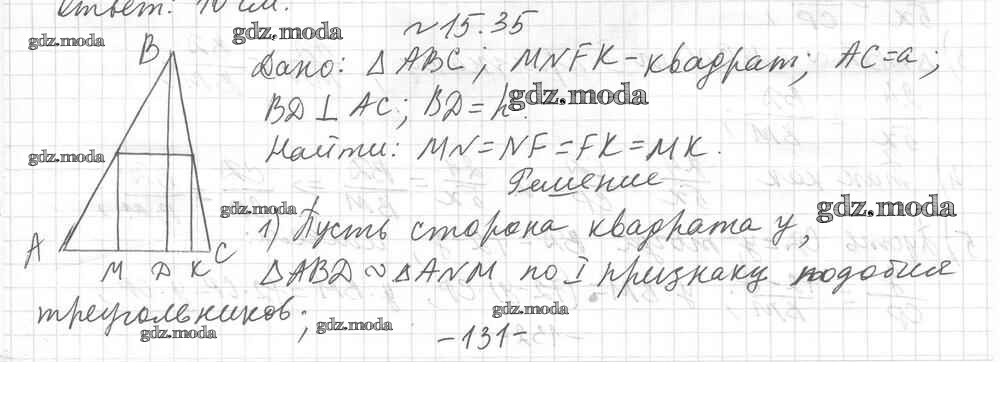 Ответ: 10 см.
№15.35
Дано: △ABC; MNFK - квадрат; AC=a;
BD⊥AC; BD=h.
Найти: MN=NF=FK=MK.
Решение
1) Пусть сторона квадрата y,
△ABD ~ △ANM по I признаку подобия
треугольников;
-131-
B
A M D K C
gdz.moda
gdz.moda
gdz.moda
gdz.moda
gdz.moda
gdz.moda
gdz.moda
gdz.moda
gdz.moda